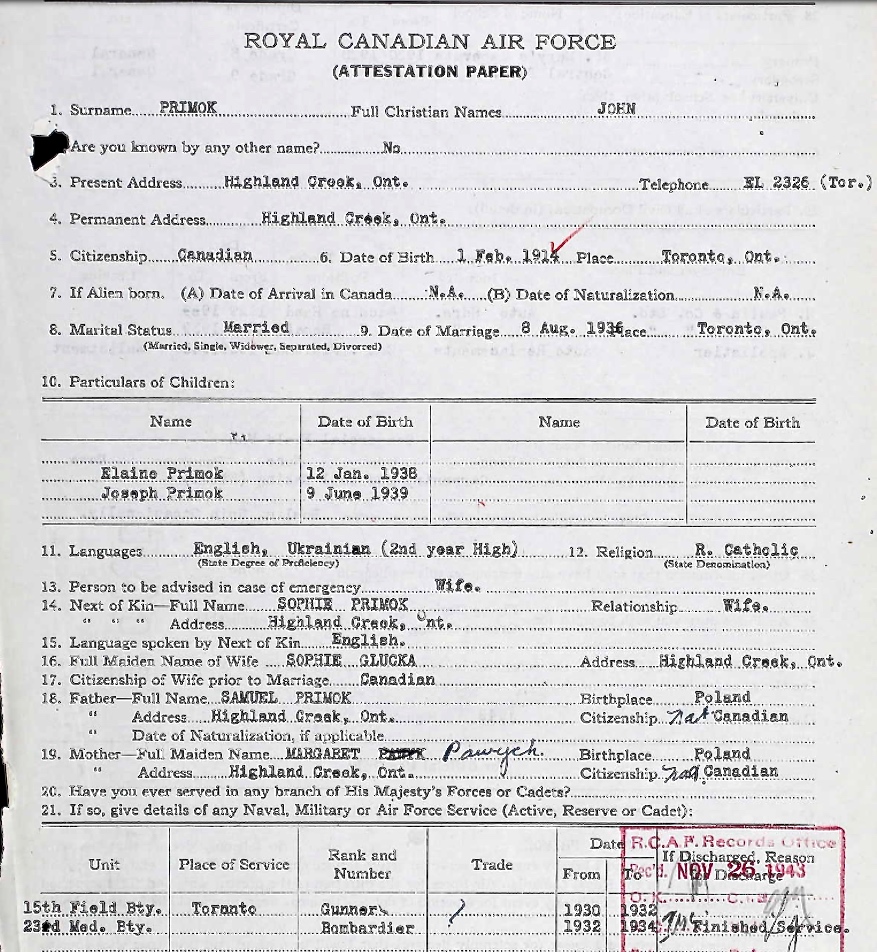 ROYAL CANADIAN AIR FORCE
(ATTESTATION PAPER)
1. Surname PRIMOK Full Christian Names JOHN
Are you known by any other name? No
3. Present Address Highland Creek, Ont. Telephone EL 2326 (Tor.)
4. Permanent Address Highland Creek, Ont.
5. Citizenship Canadian 6. Date of Birth 1 Feb. 1914 Place Toronto, Ont.
7. If Alien born. (A) Date of Arrival in Canada N.A. (B) Date of Naturalization N.A.
8. Marital Status Married 9. Date of Marriage 8 Aug. 1936 Place Toronto, Ont.
(Married, Single, Widower, Separated, Divorced)
10. Particulars of Children:
Name Date of Birth Name Date of Birth
Elaine Primok 12 Jan. 1938
Joseph Primok 9 June 1939
11. Languages English, Ukrainian (2nd year High) 12. Religion R. Catholic
(State Degree of Proficiency) (State Denomination)
13. Person to be advised in case of emergency Wife.
14. Next of Kin—Full Name SOPHIE PRIMOK Relationship Wife.
" " " Address Highland Creek, Ont.
15. Language spoken by Next of Kin English.
16. Full Maiden Name of Wife SOPHIE GLUCKA Address Highland Creek, Ont.
17. Citizenship of Wife prior to Marriage Canadian
18. Father—Full Name SAMUEL PRIMOK Birthplace Poland
" Address Highland Creek, Ont. Citizenship Nat Canadian
" Date of Naturalization, if applicable
19. Mother—Full Maiden Name MARGARET Pawych Birthplace Poland
" Address Highland Creek, Ont. Citizenship Nat Canadian
20. Have you ever served in any branch of His Majesty's Forces or Cadets?
21. If so, give details of any Naval, Military or Air Force Service (Active, Reserve or Cadet):
Unit Place of Service Rank and Number Trade Date From To If Discharged, Reason for Discharge
R.C.A.F. Records Office
Rec'd. NOV 26 1943
O.K.
15th Field Bty. Toronto Gunner 1930 1932
23rd Med. Bty. Bombardier 1932 1934 Finished/Service.